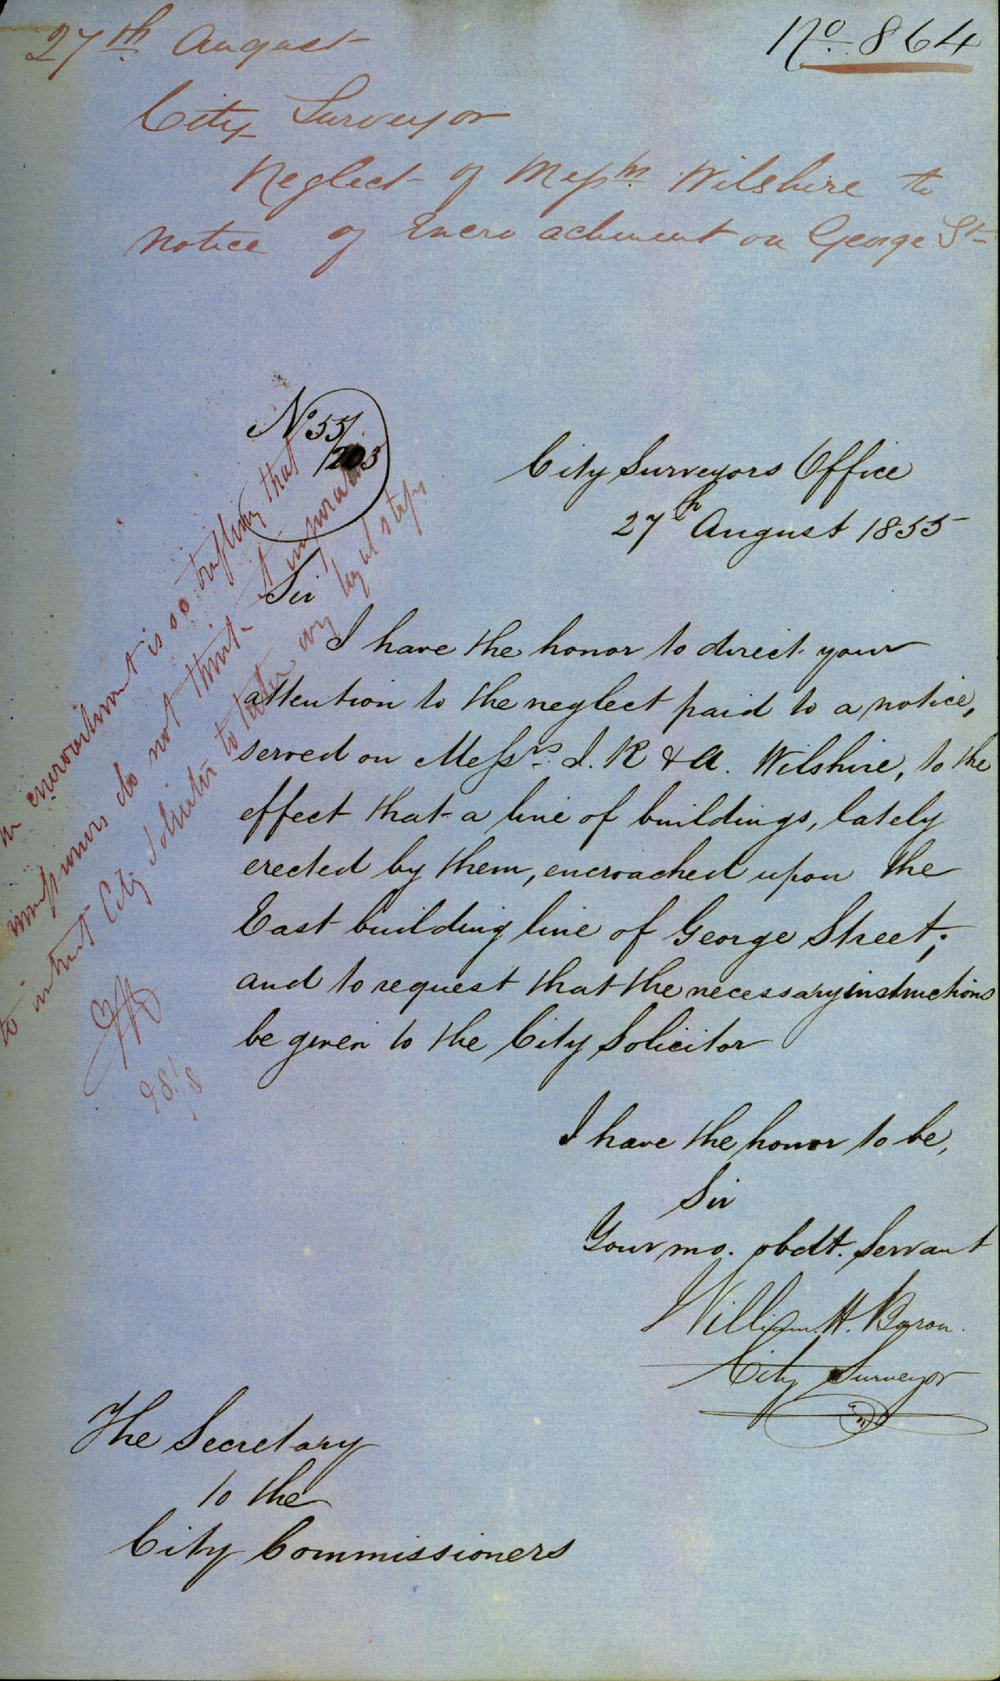 27th August
No. 864
City Surveyor
Neglect of Messrs. Wilshire to
notice of Encroachment on George St.
No. 55/
/203
City Surveyors Office
27th August 1855
Sir
I have the honor to direct your
attention to the neglect paid to a notice,
served on Messrs. J. R & A. Wilshire, to the
effect that a line of buildings, lately
erected by them, encroached upon the
East building line of George Street;
and to request that the necessary instructions
be given to the City Solicitor
I have the honor to be,
Sir
Your mo. obdt. Servant
William. H. Baron.
City Surveyor
The Secretary
to the
City Commissioners
encroachment is so trifling that
do not think it imperative
to instruct City Solicitor to take any legal steps
28/8